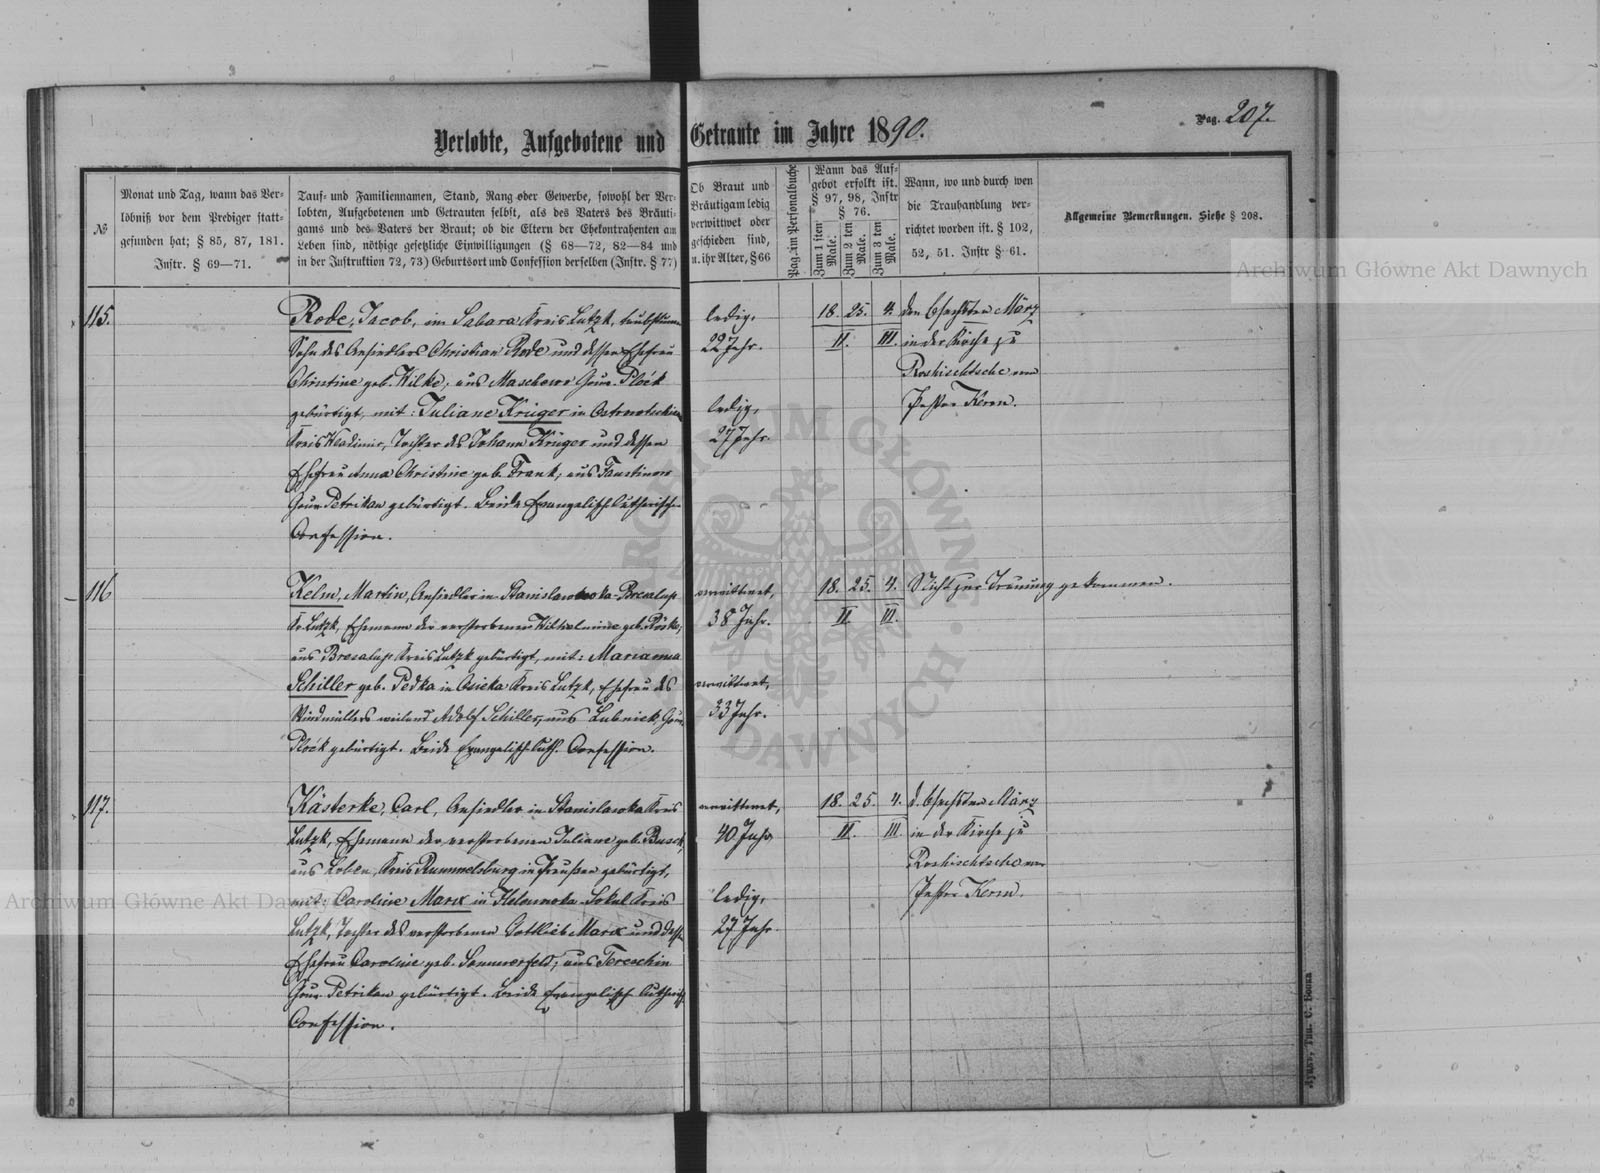 Pag. 207.
Verlobte, Aufgebotene und Getraute im Jahre 1890.
№
Monat und Tag, wann das Ver-
löbniß vor dem Prediger statt-
gefunden hat; § 85, 87, 181.
Instr. § 69—71.
Tauf- und Familiennamen, Stand, Rang oder Gewerbe, sowohl der Ver-
lobten, Aufgebotenen und Getrauten selbst, als des Vaters des Bräuti-
gams und des Vaters der Braut; ob die Eltern der Ehekontrahenten am
Leben sind, nöthige gesetzliche Einwilligungen (§ 68—72, 82—84 und
in der Instruktion 72, 73) Geburtsort und Confession derselben (Instr. § 77)
Ob Braut und
Bräutigam ledig
verwittwet oder
geschieden sind,
u. ihr Alter, § 66
Pag. im Personalbuche
Wann das Auf-
gebot erfolkt ist.
§ 97, 98, Instr
§ 76.
Zum 1 sten Male.
Zum 2 ten Male.
Zum 3 ten Male.
Wann, wo und durch wen
die Trauhandlung ver-
richtet worden ist. § 102,
52, 51. Instr § 61.
Allgemeine Bemerkungen. Siehe § 208.
115.
Rode, Jacob, im Sabara Kreis Lutzk, taubstumm
Sohn des Ansiedlers Christian Rode und dessen Ehefrau
Christine geb. Wilke, aus Maschewo Gouv. Plock
gebürtigt, mit: Juliane Krüger in
Kreis Wladimir, Tochter des Johann Krüger und dessen
Ehefrau Anna Christine geb. Frank, aus Faustinow
Gouv. Petrikau gebürtigt. Beide Evangelisch Lutherischer
Confession.
ledig,
22 Jahr.
ledig,
27 Jahr.
18. 25. 4.
II. III.
den 6 sechsten März
in der Kirche zu
Roshischtsche von
Pastor Kerm.
116
Kelm, Martin, Ansiedler in Stanislawowka-Bresalup
Kr. Lutzk, Ehemann der verstorbenen Wilhelmine geb. Röske,
aus Bresalup Kreis Lutzk gebürtigt, mit: Marianna
Schiller geb. Pedka in Osieka Kreis Lutzk, Ehefrau des
Windmüllers weiland Adolf Schiller, aus Lubniek, Gouv.
Plock gebürtigt. Beide Evangelisch Luth. Confession.
verwittwet,
38 Jahr.
verwittwet,
33 Jahr.
18. 25. 4.
II. III.
Nicht zur Trauung gekommen.
117.
Kästerke, Carl, Ansiedler in Stanislawka Kreis
Lutzk, Ehemann der verstorbenen Juliane geb. Busch,
aus Loben, Kreis Rummelsburg in Preußen gebürtigt,
mit: Caroline Marx in Helenowka-Sokul Kreis
Lutzk, Tochter des verstorbenen Gottlieb Marx und dess.
Ehefrau Caroline geb. Sommerfeld, aus Toreschin
Gouv. Petrikau gebürtigt. Beide Evangelisch Lutherisch.
Confession.
verwittwet,
40 Jahr
ledig,
27 Jahr.
18. 25. 4.
II. III.
d. 6 sechsten März
in der Kirche zu
Roshischtsche von
Pastor Kerm.
Archiwum Główne Akt Dawnych
Archiwum Główne Akt Dawnych
ARCHIWUM GŁÓWNE AKT DAWNYCH